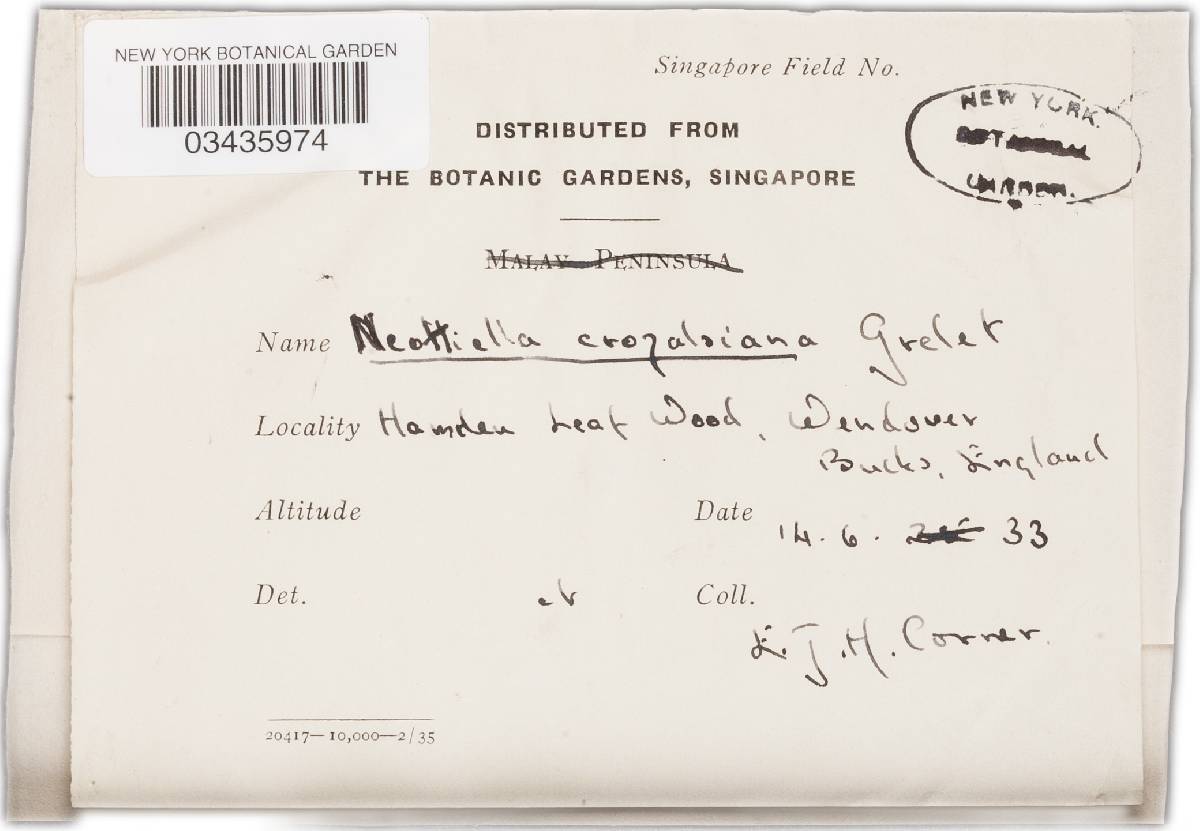 NEW YORK BOTANICAL GARDEN
03435974
Singapore Field No.
NEW YORK.
BOTANICAL
GARDEN.
DISTRIBUTED FROM
THE BOTANIC GARDENS, SINGAPORE
MALAY PENINSULA
Name Neottiella crozalsiana Grelet
Locality Hamden Leaf Wood, Wendover
Bucks, England
Altitude
Date 14. 6. 33
Det.
Coll.
E. J. H. Corner.
20417—10,000—2/35